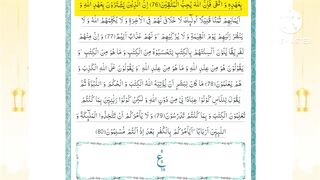 بِعَهْدِهٖ وَ اتَّقٰى فَاِنَّ اللّٰهَ یُحِبُّ الْمُتَّقِیْنَ(76) اِنَّ الَّذِیْنَ یَشْتَرُوْنَ بِعَهْدِ اللّٰهِ وَ
اَیْمَانِهِمْ ثَمَنًا قَلِیْلًا اُولٰٓىٕكَ لَا خَلَاقَ لَهُمْ فِی الْاٰخِرَةِ وَ لَا یُكَلِّمُهُمُ اللّٰهُ وَ لَا
یَنْظُرُ اِلَیْهِمْ یَوْمَ الْقِیٰمَةِ وَ لَا یُزَكِّیْهِمْ وَ لَهُمْ عَذَابٌ اَلِیْمٌ(77) وَ اِنَّ مِنْهُمْ
لَفَرِیْقًا یَّلْوٗنَ اَلْسِنَتَهُمْ بِالْكِتٰبِ لِتَحْسَبُوْهُ مِنَ الْكِتٰبِ وَ مَا هُوَ مِنَ الْكِتٰبِۚ وَ
یَقُوْلُوْنَ هُوَ مِنْ عِنْدِ اللّٰهِ وَ مَا هُوَ مِنْ عِنْدِ اللّٰهِۚ وَ یَقُوْلُوْنَ عَلَى اللّٰهِ الْكَذِبَ وَ
هُمْ یَعْلَمُوْنَ(78) مَا كَانَ لِبَشَرٍ اَنْ یُّؤْتِیَهُ اللّٰهُ الْكِتٰبَ وَ الْحُكْمَ وَ النُّبُوَّةَ ثُمَّ
یَقُوْلَ لِلنَّاسِ كُوْنُوْا عِبَادًا لِّیْ مِنْ دُوْنِ اللّٰهِ وَ لٰكِنْ كُوْنُوْا رَبّٰنِیّٖنَ بِمَا كُنْتُمْ
تُعَلِّمُوْنَ الْكِتٰبَ وَ بِمَا كُنْتُمْ تَدْرُسُوْنَ(79) وَ لَا یَاْمُرَكُمْ اَنْ تَتَّخِذُوا الْمَلٰٓىٕكَةَ وَ
النَّبِیّٖنَ اَرْبَابًاؕ اَیَاْمُرُكُمْ بِالْكُفْرِ بَعْدَ اِذْ اَنْتُمْ مُّسْلِمُوْنَ(80)
ع